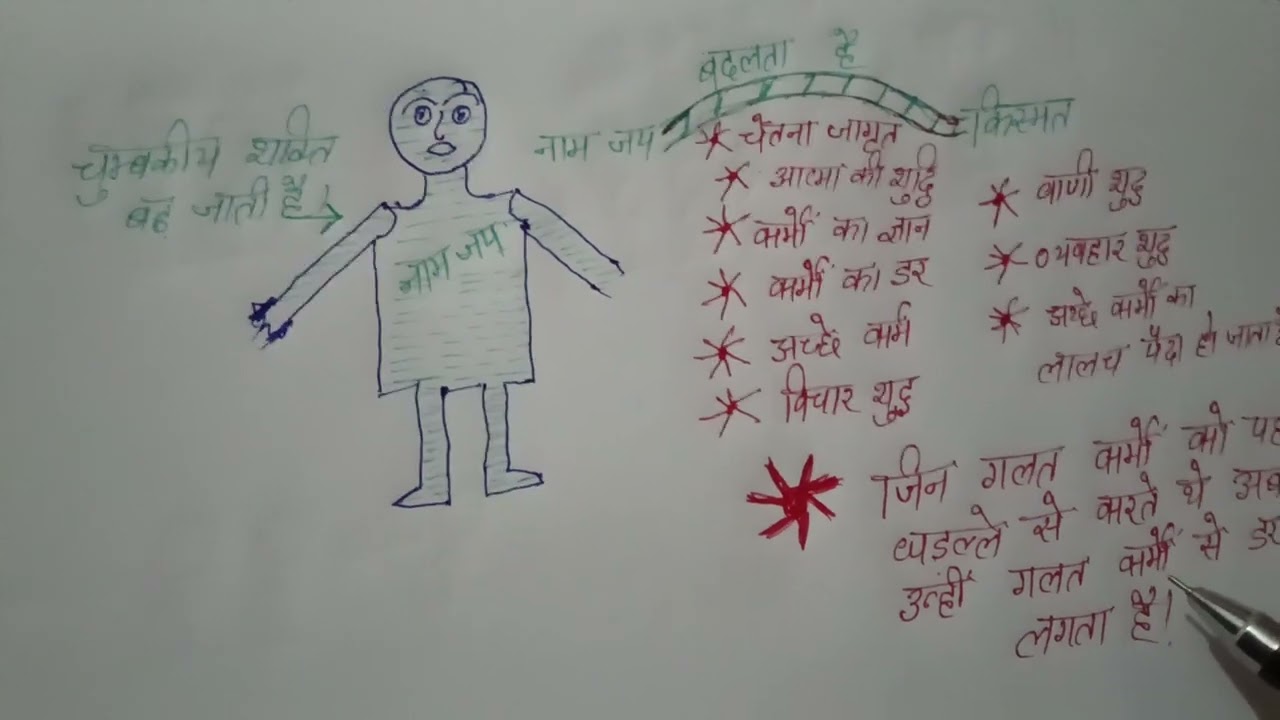 बदलता है
नाम जप
किस्मत
चुम्बकीय शक्ति
बढ़ जाती है!
नाम जप
चेतना जागृत
आत्मा की शुद्धि
कर्मों का ज्ञान
कर्मों का डर
अच्छे कर्म
विचार शुद्ध
वाणी शुद्ध
व्यवहार शुद्ध
अच्छे कर्मों का
लालच पैदा हो जाता
जिन गलत कर्मों को
धड़ल्ले से करते थे अब
उन्हीं गलत कर्मों से डर
लगता है!